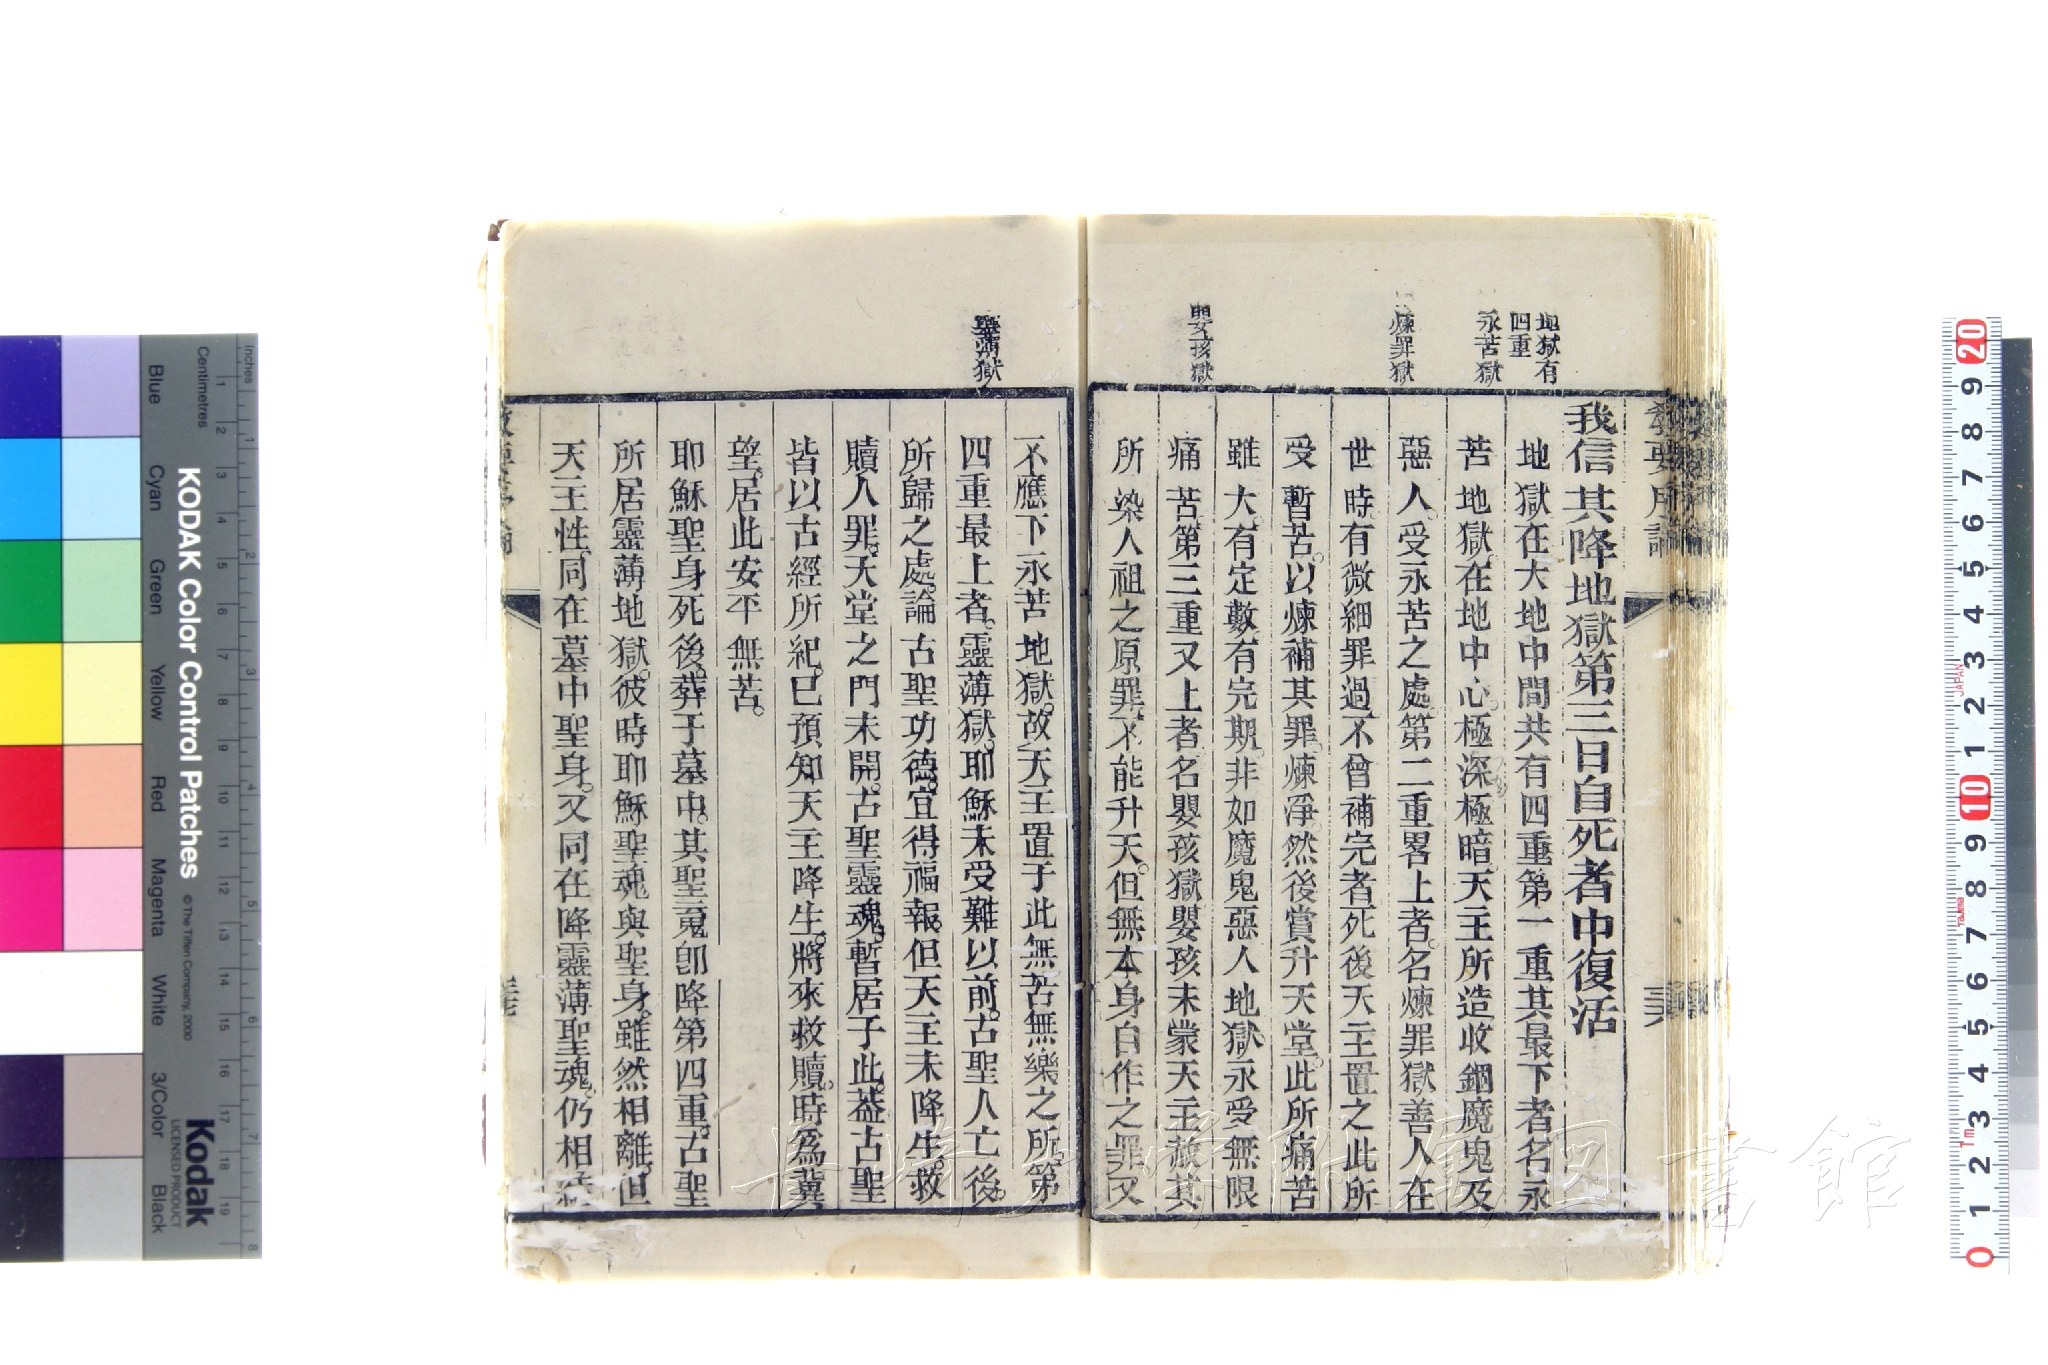 地獄有
四重
永苦獄
煉罪獄
嬰孩獄
我信其降地獄第三日自死者中復活
地獄在大地中間共有四重第一重其最下者名永
苦地獄。在地中心。極深極暗天主所造收錮魔鬼及
惡人。受永苦之處。第二重畧上者。名煉罪獄善人在
世時。有微細罪過。不曾補完者死後天主置之此所
受暫苦。以煉補其罪。煉淨。然後賞升天堂。此所痛苦
雖大。有定數有完期。非如魔鬼惡人地獄。永受無限
痛苦第三重又上者名嬰孩獄嬰孩未蒙天主赦其
所染人祖之原罪。不能升天。但無本身自作之罪又
靈薄獄
不應下永苦地獄。故天主置于此無苦無樂之所。第
四重最上者。靈薄獄。耶穌未受難以前。古聖人亡後。
所歸之處。論古聖功德。宜得福報。但天主未降生。救
贖人罪。天堂之門未開。古聖靈魂。暫居于此。葢古聖
皆以古經所紀。已預知天主降生。將來救贖。時爲冀
望。居此安平無苦。
耶穌聖身死後。葬于墓中。其聖䰟卽降第四重。古聖
所居靈薄地獄。彼時耶穌聖魂與聖身。雖然相離。但
天主性。同在墓中聖身。又同在降靈薄聖魂。仍相結
KODAK Color Control Patches
© The Tiffen Company, 2000
Kodak
LICENSED PRODUCT
Inches
Centimetres
Blue
Cyan
Green
Yellow
Red
Magenta
White
3/Color
Black